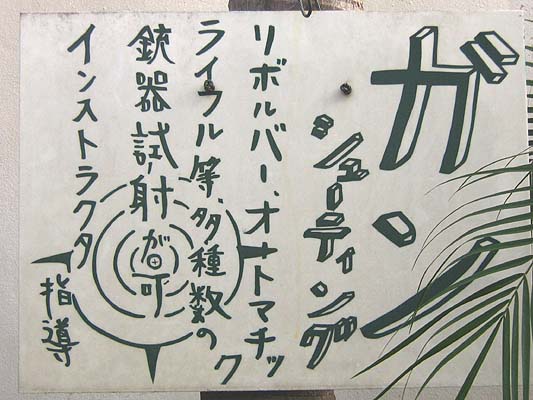 ガン
シューティング
リボルバー、オートマチック
ライフル等、多種数の
銃器試射が可
インストラクタ
指導